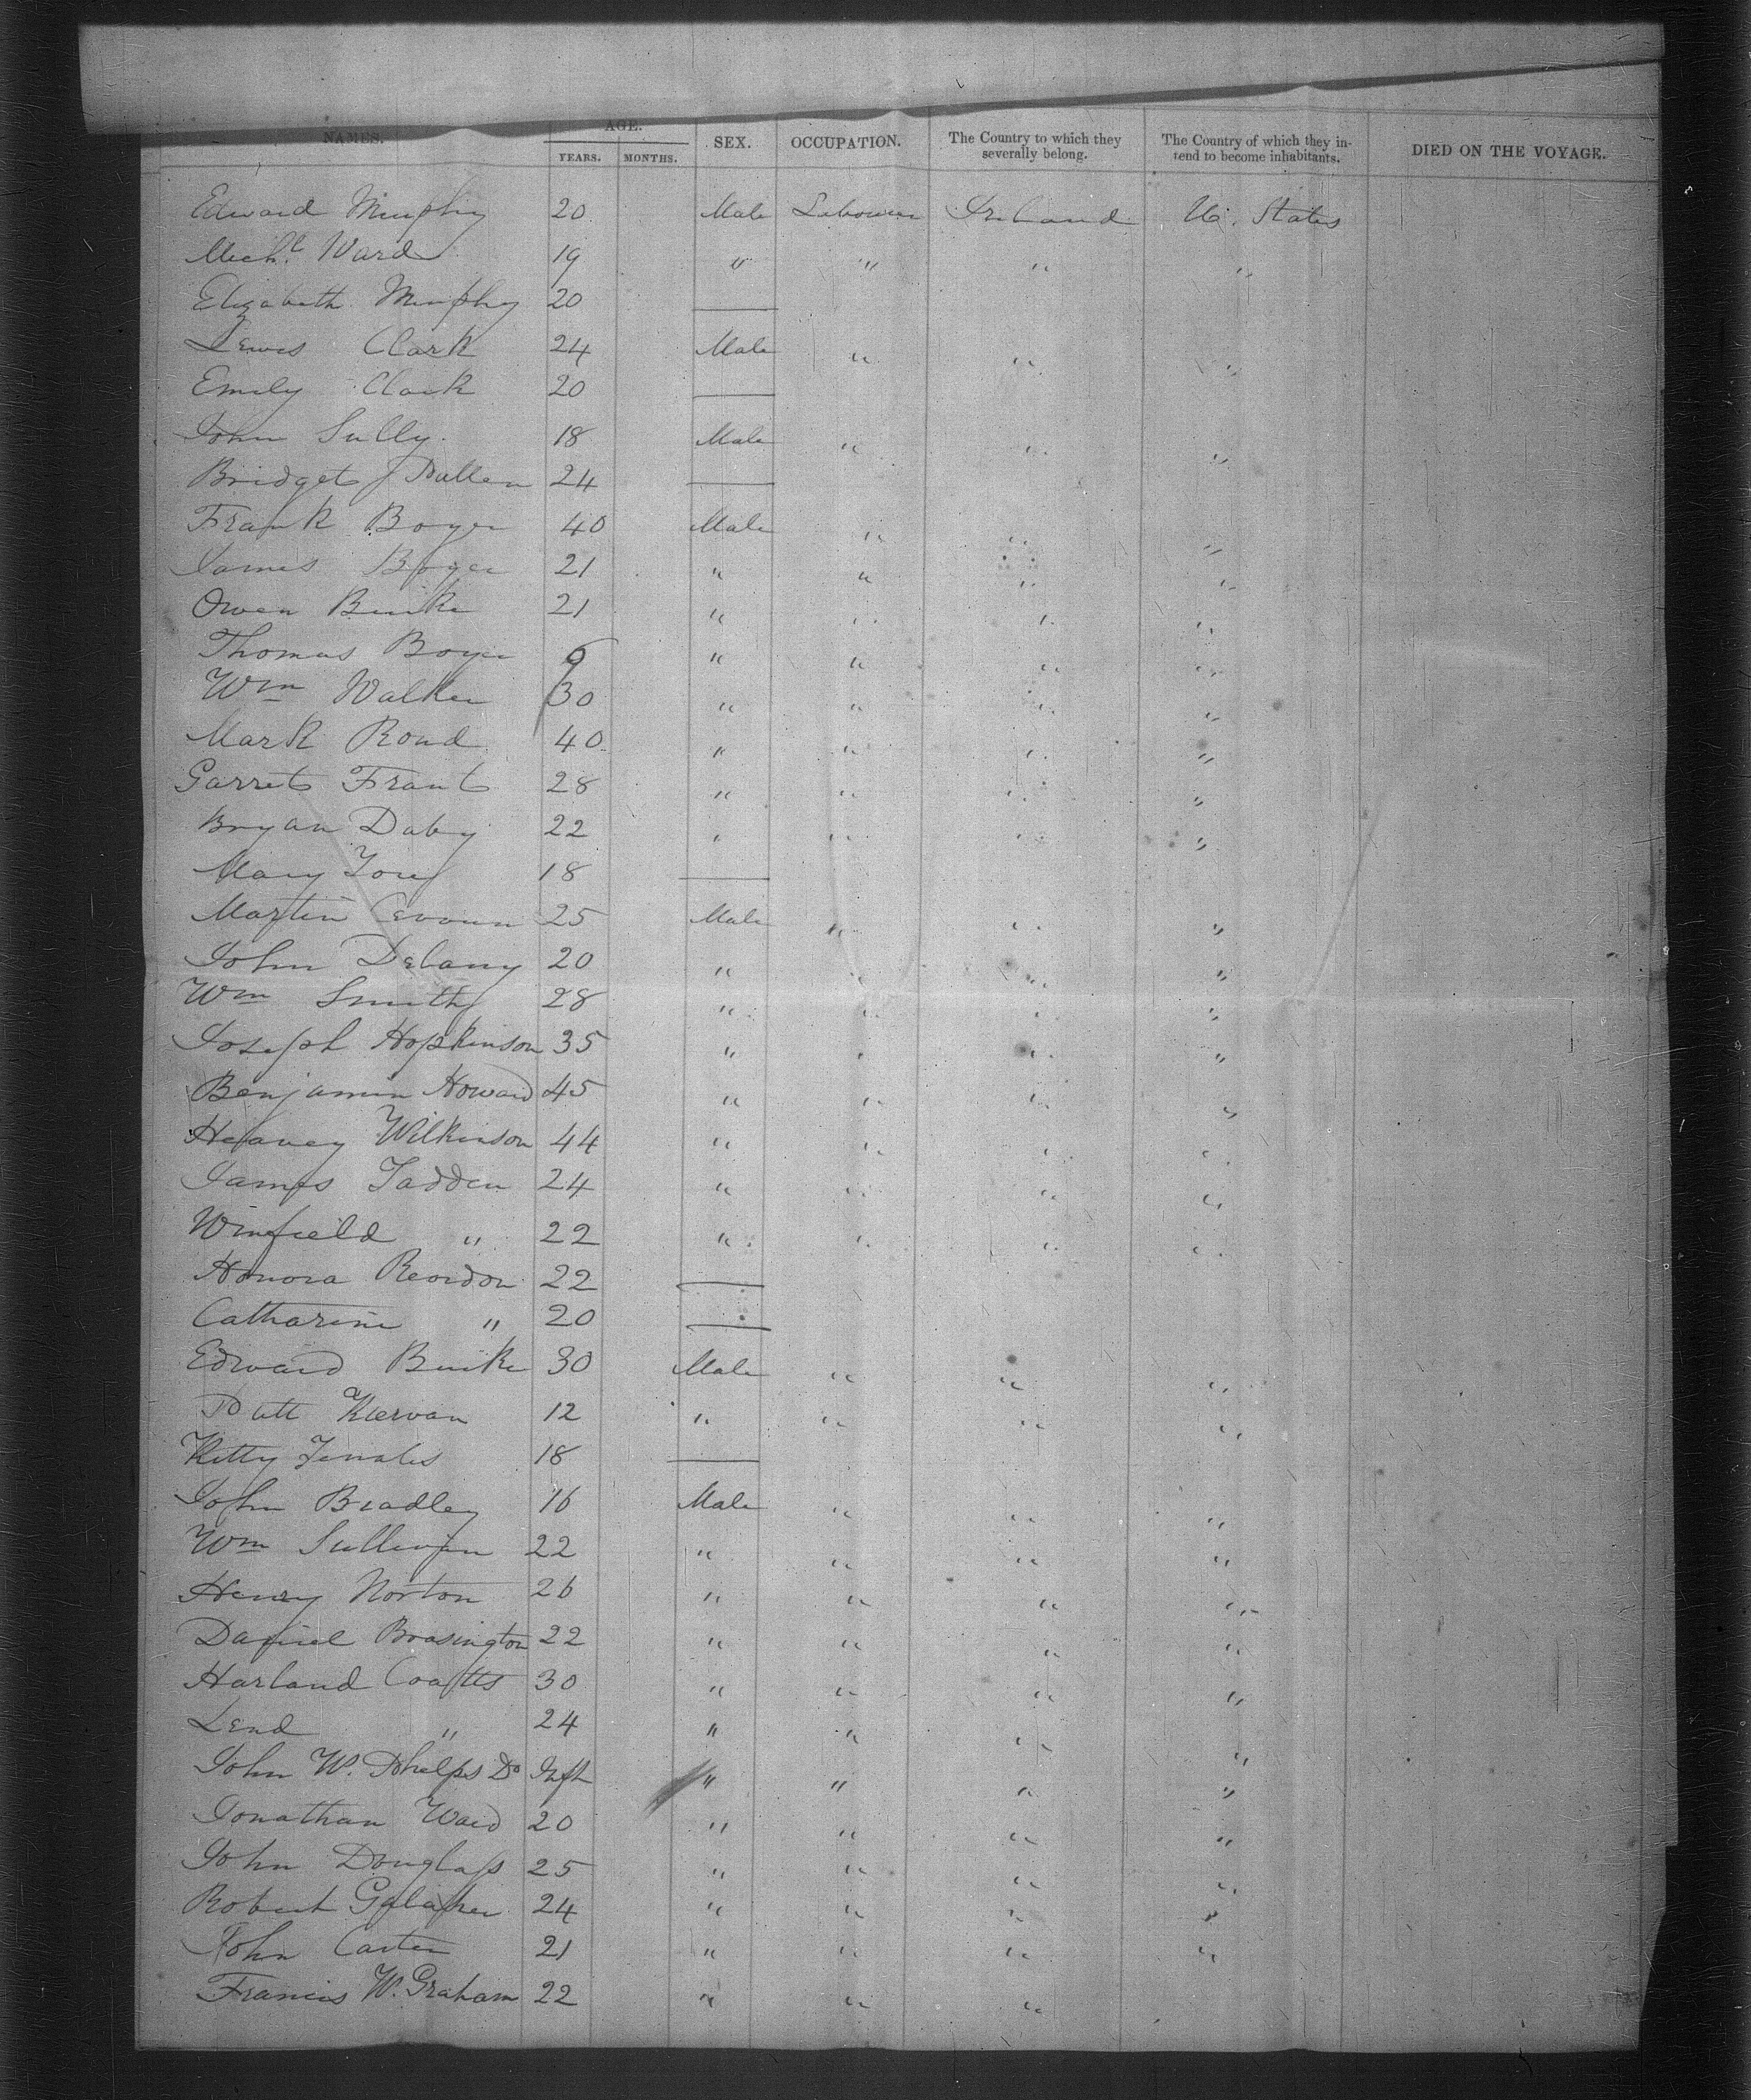 NAMES. AGE. SEX. OCCUPATION. The Country to which they severally belong. The Country of which they intend to become inhabitants. DIED ON THE VOYAGE.
YEARS. MONTHS.
Edward Murphy 20 Male Labourer Ireland U. States
Mich.l Ward 19 " " " "
Elizabeth Murphy 20 —
Lewis Clark 24 Male " " "
Emily Clark 20 —
John Sully 18 Male " " "
Bridget 24 —
Frank Boyer 40 Male " " "
James Boyer 21 " " " "
Owen Burke 21 " " " "
Thomas Boyer 9 " " " "
Wm Walker 30 " " " "
Mark Rond 40 " " " "
Garret Frant 28 " " " "
Bryan Daby 22 " " " "
Mary 18 —
Martin 25 Male " " "
John Delany 20 " " " "
Wm Smith 28 " " " "
Joseph Hopkinson 35 " " " "
Benjamin Howard 45 " " " "
Heavey Wilkinson 44 " " " "
James Tadden 24 " " " "
Winfield " 22 " " " "
Honora Reordon 22 —
Catharine " 20 —
Edward Burke 30 Male " " "
Patt Kiervan 12 " " " "
Kitty 18 —
John Bradley 16 Male " " "
Wm Sullivan 22 " " " "
Henry Norton 26 " " " "
Daniel Brasington 22 " " " "
Harland Coatts 30 " " " "
Lend " 24 " " " "
John W. Phelps Do Inft " " " "
Jonathan Ward 20 " " " "
John Douglass 25 " " " "
Robert Galaher 24 " " " "
John Carter 21 " " " "
Francis W. Graham 22 " " "